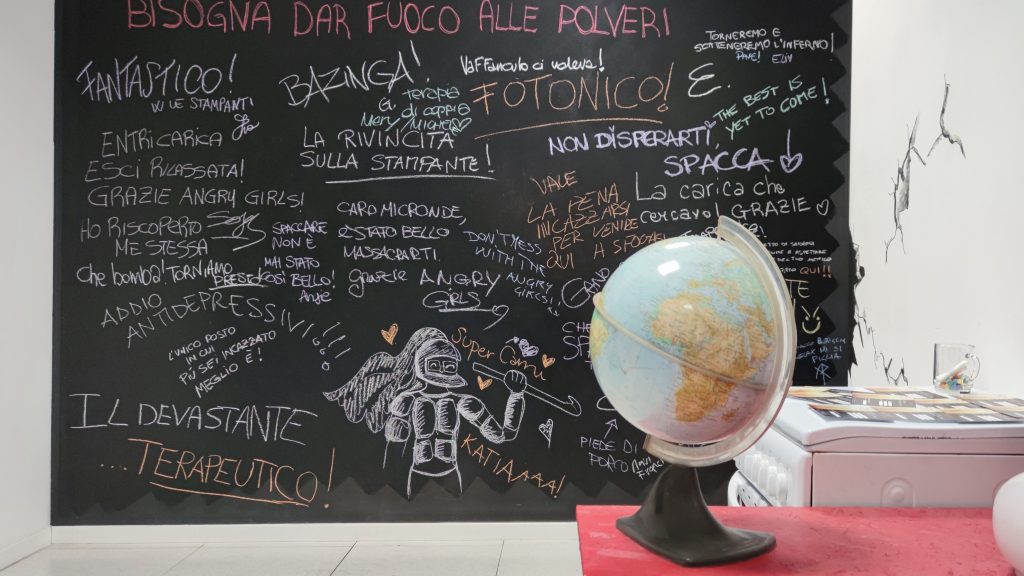 BISOGNA DAR FUOCO ALLE POLVERI
FANTASTICO!
W LE STAMPANTI
BAZINGA!
Terapia
di coppia
Vaffanculo ci voleva!
FOTONICO!
TORNEREMO E
SCATENEREMO L'INFERNO!
E.
THE BEST IS
YET TO COME!
ENTRI CARICA
ESCI RILASSATA!
GRAZIE ANGRY GIRLS!
LA RIVINCITA
SULLA STAMPANTE!
NON DISPERARTI,
SPACCA
VALE
LA PENA
INCAZZARSI
PER VENIRE
QUI A
La carica che
cercavo! GRAZIE
HO RISCOPERTO
ME STESSA
SPACCARE
NON È
MAI STATO
COSÌ BELLO!
CARO MICRONDE,
È STATO BELLO
MASSACRARTI.
grazie ANGRY
GIRLS
DON'T MESS
WITH THE
ANGRY
GIRLS!
Che bomba! TORNIAMO
PRESTO
QUI!!
ADDIO
ANTIDEPRESSIVI!!!!!!
L'UNICO POSTO
IN CUI
PIÙ SEI INCAZZATO
MEGLIO È!
Super
KATIAAAA!
IL DEVASTANTE
.... TERAPEUTICO!
PIEDE DI